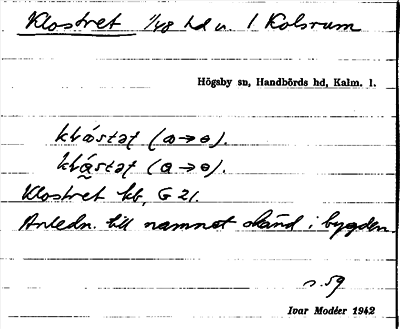 Klostret 1/48 hd u. 1 Kolsrum
Högsby sn, Handbörds hd, Kalm. l.
Klostret kb, G 21.
Anledn. till namnet okänd i bygden.
s. 59
Ivar Modéer 1942